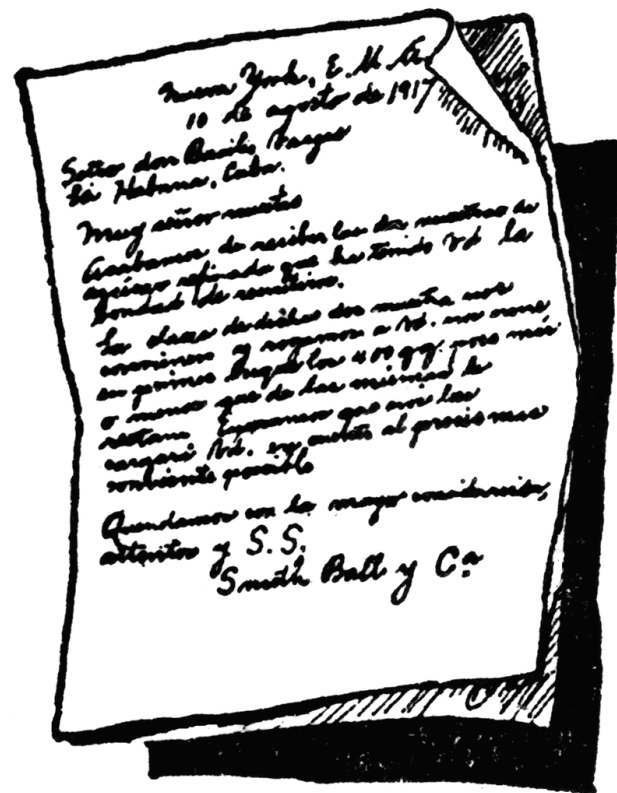 Nueva York, E. U. A.
10 de agosto de 1917
Señor don Basilio Vargas
La Habana, Cuba.
Muy señor nuestro
Acabamos de recibir las dos muestras de
azúcar refinado que ha tenido Vd la
bondad de remitirnos.
La clase de dicha dos muestra nos
conviene y rogamos a Vd. nos
en primer buque los 400 qq. poco más
o menos que de las mismas le
restan. Esperamos que nos los
cargará Vd. en cuenta al precio mas
conveniente posible
Quedamos con la mayor consideración,
atentos y S. S.
Smith Ball y Cª